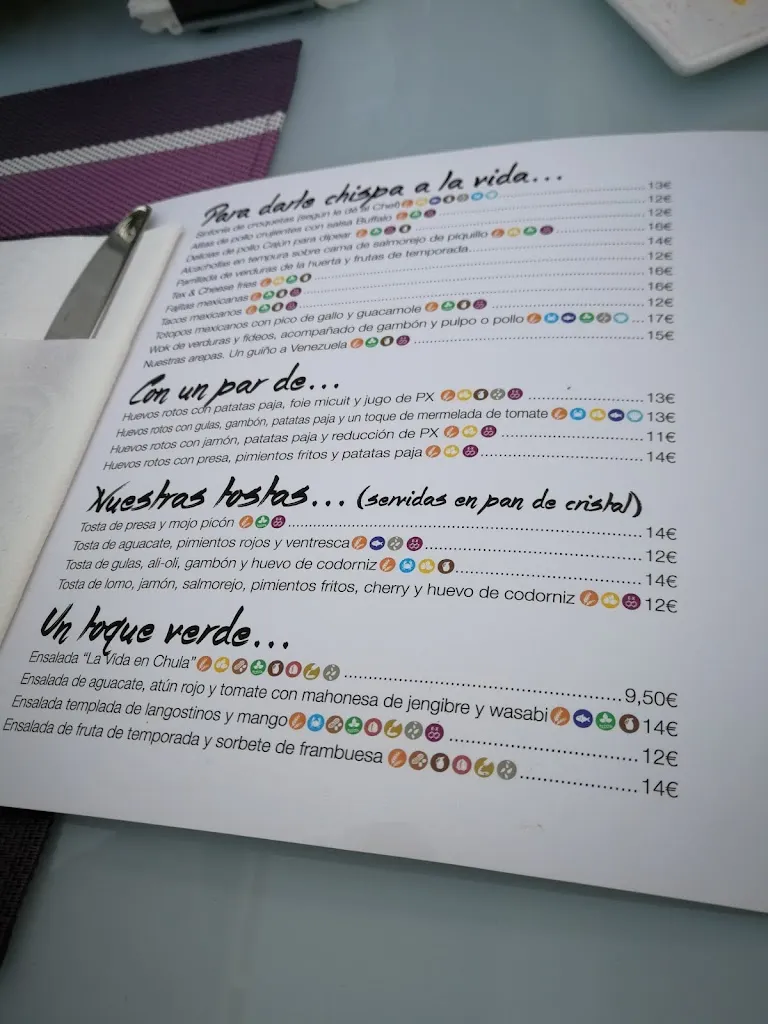 Para darle chispa a la vida...
Sinfonía de croquetas (según le dé al Chef) 13€
Alitas de pollo crujientes con salsa Buffalo 12€
Delicias de pollo Cajún para dipear 12€
Alcachofas en tempura sobre cama de salmorejo de piquillo 16€
Parrillada de verduras de la huerta y frutas de temporada 14€
Tex & Cheese fries 12€
Fajitas mexicanas 16€
Tacos mexicanos 16€
Totopos mexicanos con pico de gallo y guacamole 12€
Wok de verduras y fideos, acompañado de gambón y pulpo o pollo ...17€
Nuestras arepas. Un guiño a Venezuela 15€
Con un par de...
Huevos rotos con patatas paja, foie micuit y jugo de PX 13€
Huevos rotos con gulas, gambón, patatas paja y un toque de mermelada de tomate 13€
Huevos rotos con jamón, patatas paja y reducción de PX 11€
Huevos rotos con presa, pimientos fritos y patatas paja 14€
Nuestras tostas... (servidas en pan de cristal)
Tosta de presa y mojo picón 14€
Tosta de aguacate, pimientos rojos y ventresca 12€
Tosta de gulas, ali-oli, gambón y huevo de codorniz 14€
Tosta de lomo, jamón, salmorejo, pimientos fritos, cherry y huevo de codorniz 12€
Un toque verde...
Ensalada "La Vida en Chula" 9,50€
Ensalada de aguacate, atún rojo y tomate con mahonesa de jengibre y wasabi 14€
Ensalada templada de langostinos y mango 12€
Ensalada de fruta de temporada y sorbete de frambuesa 14€